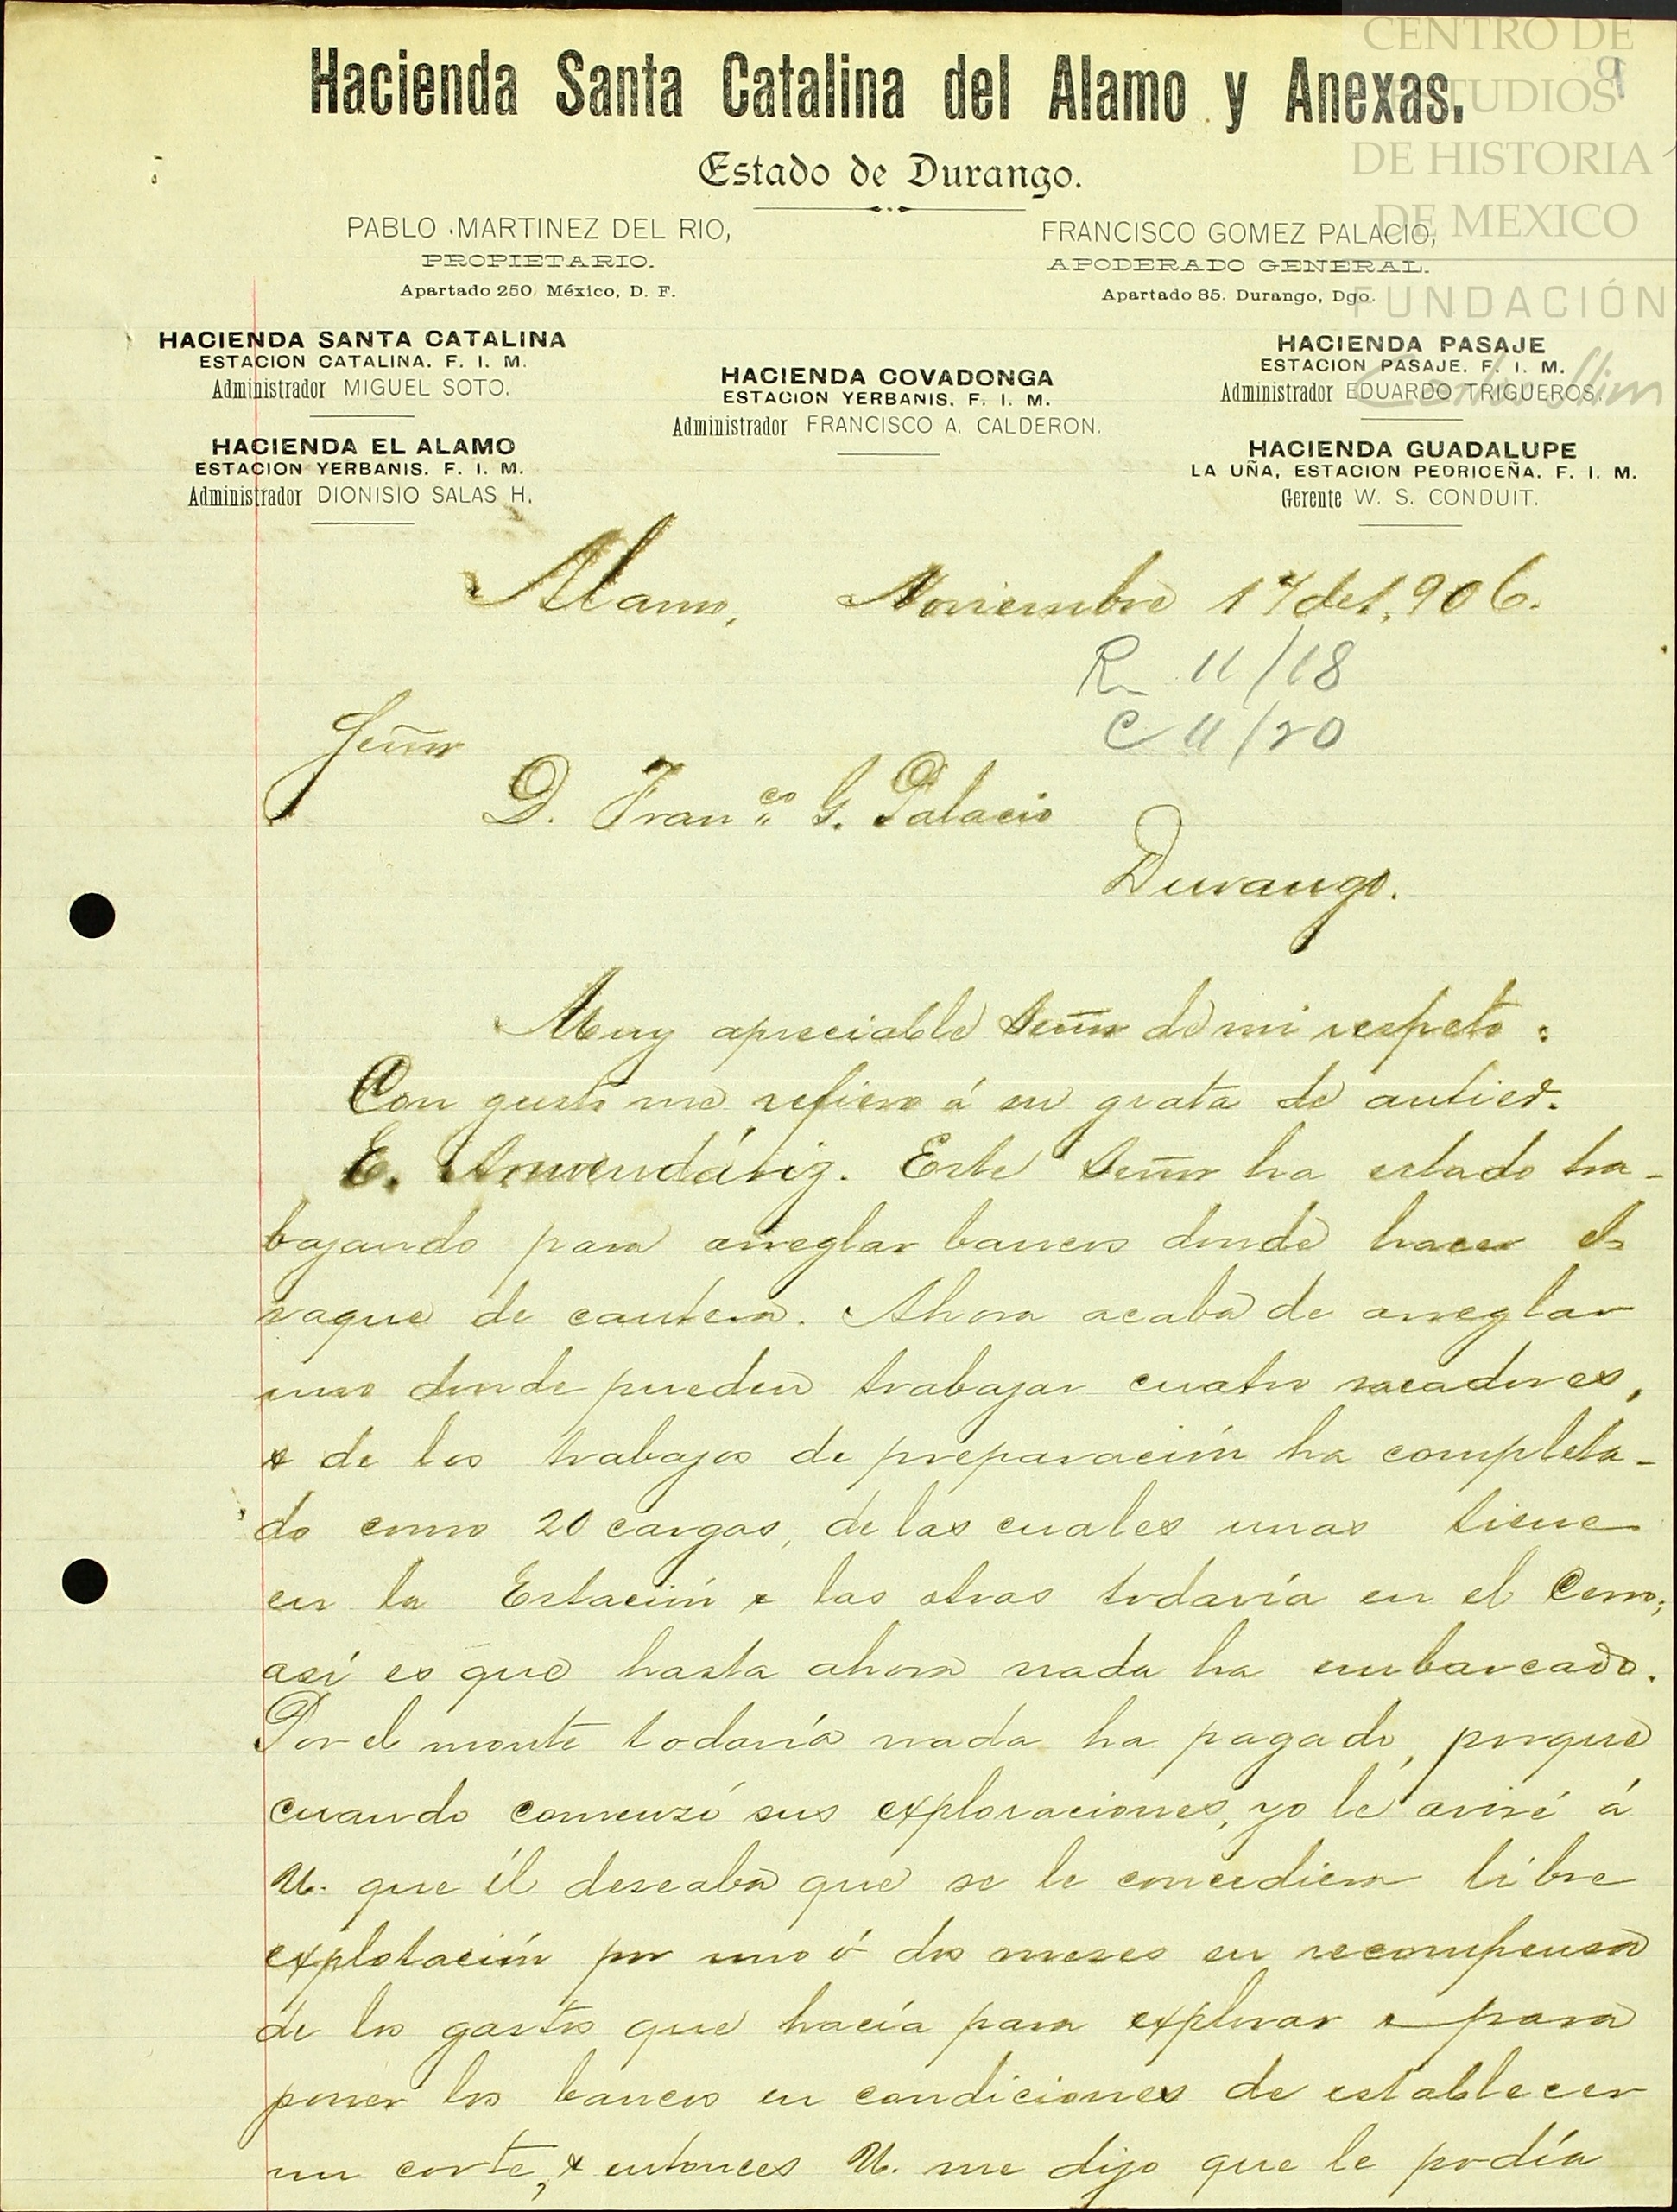 Hacienda Santa Catalina del Alamo y Anexas.
Estado de Durango.
PABLO MARTINEZ DEL RIO,
PROPIETARIO.
Apartado 250 México, D. F.
FRANCISCO GOMEZ PALACIO,
APODERADO GENERAL.
Apartado 85. Durango, Dgo.
HACIENDA SANTA CATALINA
ESTACION CATALINA. F. I. M.
Administrador MIGUEL SOTO.
HACIENDA EL ALAMO
ESTACION YERBANIS. F. I. M.
Administrador DIONISIO SALAS H.
HACIENDA COVADONGA
ESTACION YERBANIS. F. I. M.
Administrador FRANCISCO A. CALDERON.
HACIENDA PASAJE
ESTACION PASAJE. F. I. M.
Administrador EDUARDO TRIGUEROS.
HACIENDA GUADALUPE
LA UÑA, ESTACION PEDRICEÑA. F. I. M.
Gerente W. S. CONDUIT.
CENTRO DE
ESTUDIOS
DE HISTORIA
DE MEXICO
FUNDACIÓN
Carlos Slim
9
Alamo, Noviembre 17 de 1,906.
R 11/18
C 11/20
Señor
D. Franco G. Palacio
Durango.
Muy apreciable Señor de mi respeto:
Con gusto me refiero á su grata de antier.
E. Armendáriz. Este Señor ha estado tra-
bajando para arreglar bancos donde hacer el
saque de cantera. Ahora acaba de arreglar
uno donde pueden trabajar cuatro sacadores,
& de los trabajos de preparación ha completa-
do como 20 cargas, de las cuales unas tiene
en la Estación & las otras todavía en el Cerro;
así es que hasta ahora nada ha embarcado.
Por el monte todavía nada ha pagado, porque
cuando comenzó sus exploraciones, yo le avisé á
U. que él deseaba que se le concediera libre
explotación por uno ó dos meses en recompensa
de los gastos que hacía para explorar & para
poner los bancos en condiciones de establecer
un corte, & entonces U. me dijo que le podía